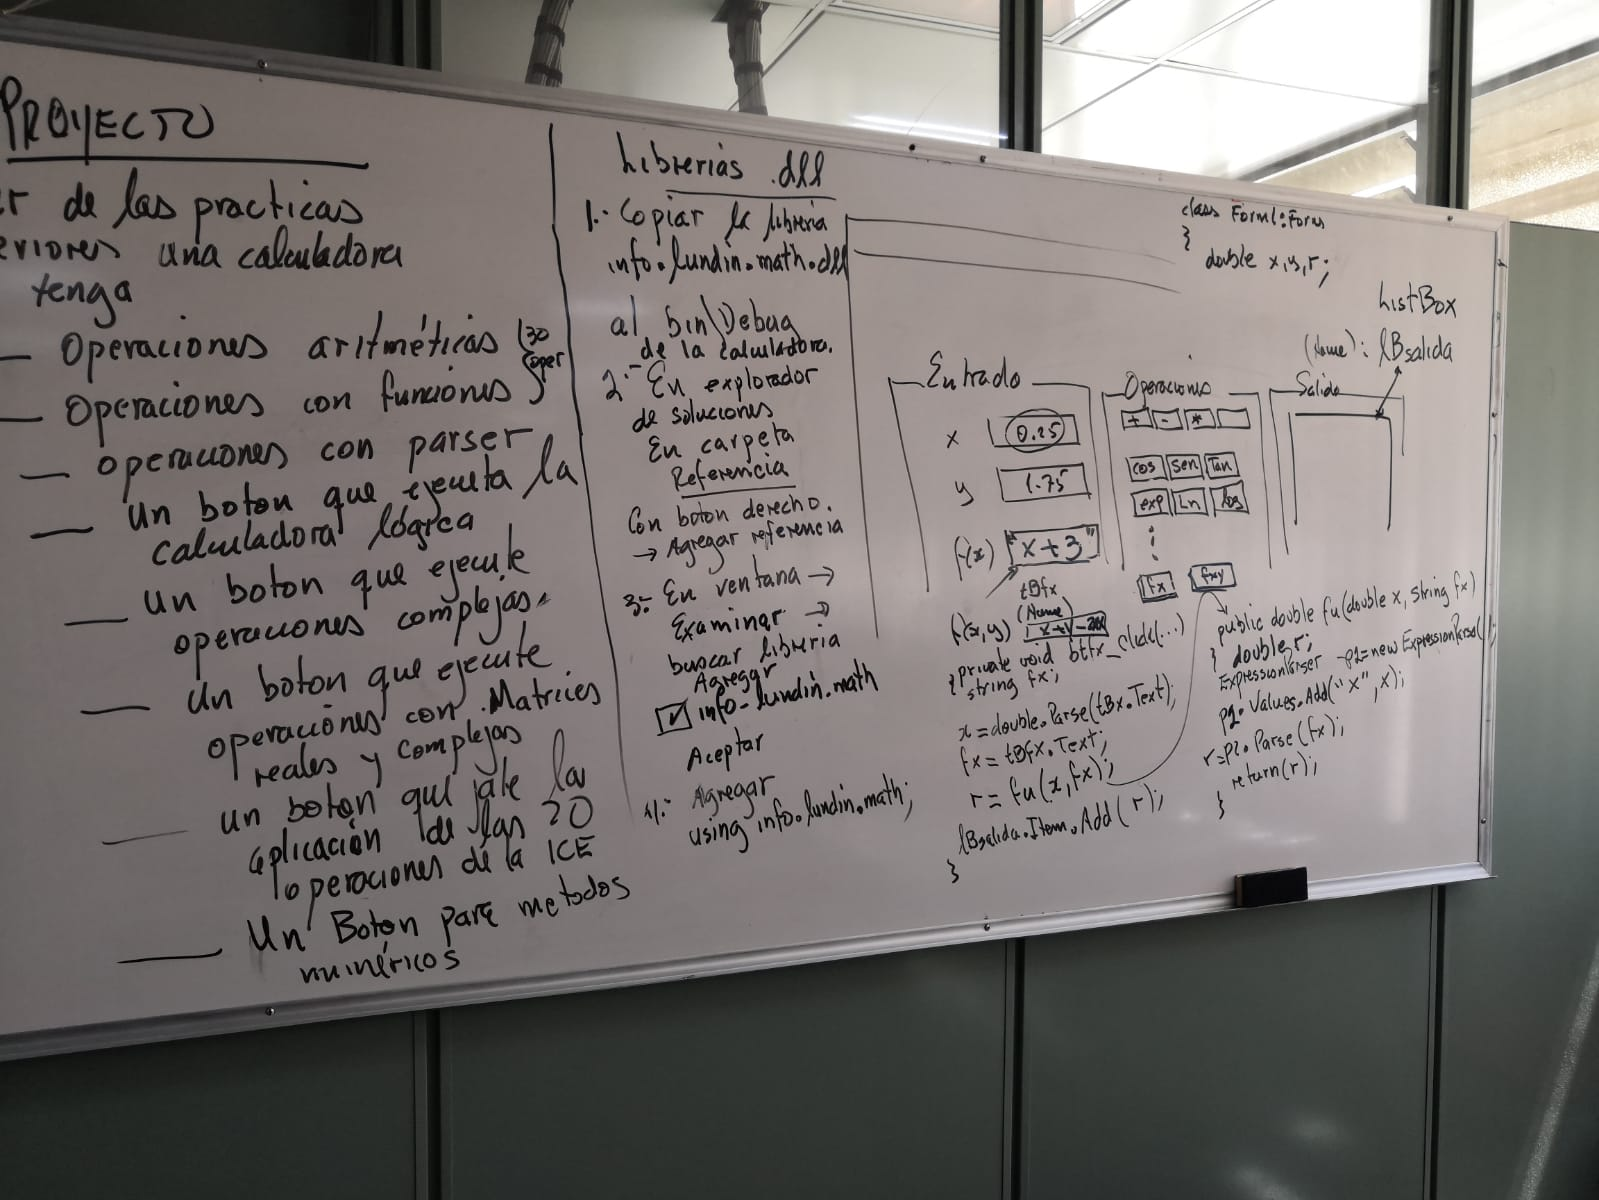 PROYECTO
de las practicas
eriores una calculadora
tenga
— Operaciones aritméticas (30
— Operaciones con funciones } oper
— operaciones con parser
— un boton que ejecuta la
calculadora lógica
— un boton que ejecute
operaciones complejas.
— un boton que ejecute
operaciones con Matrices
reales y complejas
— un boton que jale la
aplicación de las 20
operaciones de la ICE
— Un Boton para metodos
numéricos
Librerias .dll
1.- Copiar la libreria
info.lundin.math.dll
al bin\Debug
de la calculadora.
2.- En explorador
de soluciones
En carpeta
Referencia
Con boton derecho.
→ Agregar referencia
3.- En ventana →
Examinar →
buscar libreria
Agregar
info-lundin.math
Aceptar
4.- Agregar
using info.lundin.math;
class Form1:Form
{
double x,y,r;
ListBox
(Name): lBsalida
Entrada
x 0.25
y 1.75
f(x) "x+3"
tBfx
(Name)
f(x,y)
Operaciones
+ - *
cos sen Tan
exp Ln log
fx fxy
Salida
private void btfx_click(...)
{ string fx;
x=double.Parse(tBx.Text);
fx=tBfx.Text;
r=fu(x,fx);
lBsalida.Item.Add(r);
}
public double fu(double x, string fx)
{ double r;
ExpressionParser p1=new ExpressionParser();
p1.Values.Add("x",x);
r=p1.Parse(fx);
return(r);
}